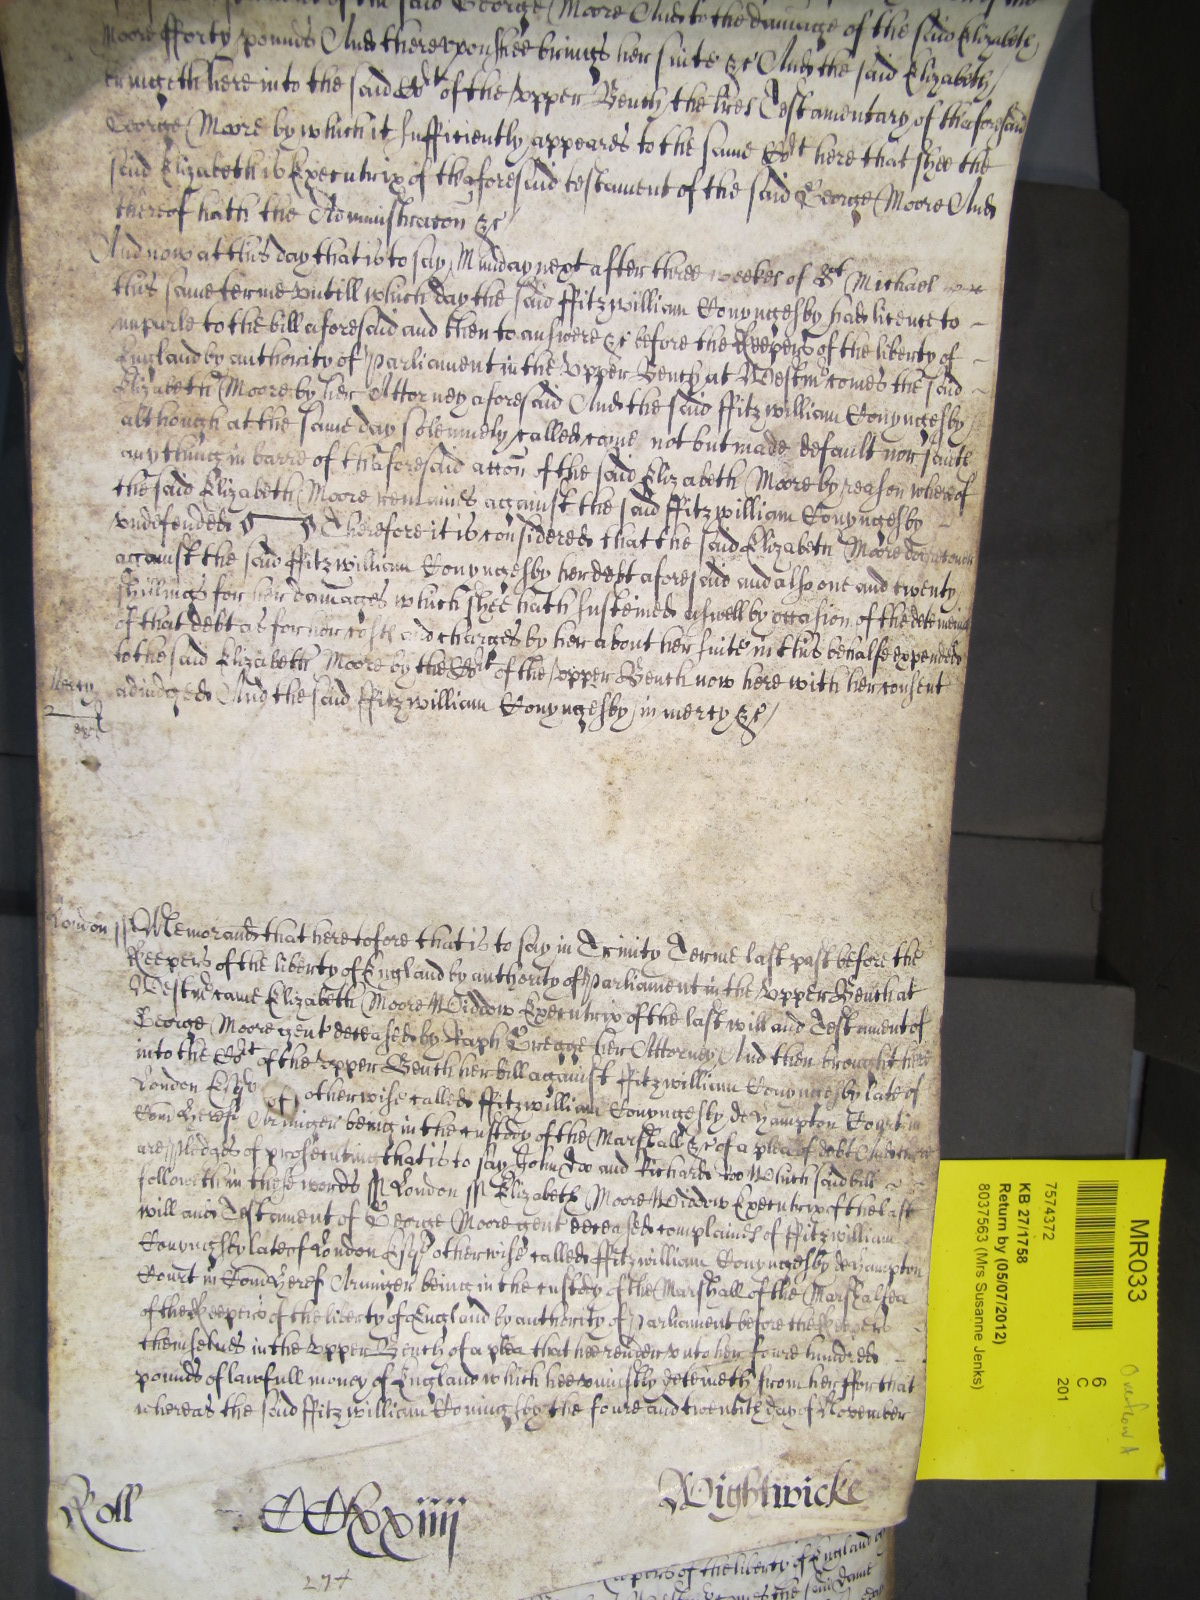 testament of the said George Moore And to the damage of the said Elizabeth
Moore fforty pounds And thereupon shee brings her suite &c And the said Elizabeth
bringeth here into the said Co:rt of the upper Bench the lres Testamentary of thaforesaid
George Moore by which it sufficiently appeares to the same Co:rt here that shee the
said Elizabeth is Executrix of thaforesaid testament of the said George Moore And
thereof hath the Administracon &c
And now at this day that is to say Munday next after three weekes of St Michael
this same terme untill which day the said ffitzwilliam Conyngesby had licence to
imparle to the bill aforesaid and then to answere &c before the Keepers of the liberty of
England by authority of Parliament in the Upper Bench at Westm comes the said
Elizabeth Moore by her Attorney aforesaid And the said ffitzwilliam Conyngesby
although at the same day solemnely called came not but made default nor saith
any thing in barre of thaforesaid accon of the said Elizabeth Moore by reason whereof
the said Elizabeth Moore remaines against the said ffitzwilliam Conyngesby
undefended Therefore it is considered that the said Elizabeth Moore doe recover
against the said ffitzwilliam Conyngesby her debt aforesaid and also one and twenty
shillings for her damages which shee hath susteined aswell by occasion of the deteineing
of that debt as for her costs and charges by her about her suite in this behalfe expended
to the said Elizabeth Moore by the Co:rt of the upper Bench now here with her consent
Mercy
adiudged And the said ffitzwilliam Conyngesby in mercy &c
London ss Memorand that heretofore that is to say in Trinity Terme last past before the
Keepers of the liberty of England by authority of Parliament in the Upper Bench at
Westm came Elizabeth Moore Widdow Executrix of the last will and Testament of
George Moore gent deceased by Raph Gregge her Attorney And then brought here
into the Co:rt of the upper Bench her bill against ffitzwilliam Conyngesby late of
London Esq otherwise called ffitzwilliam Conyngesby de Hampton Court in
Com Heref Armiger being in the custody of the Marshall &c of a plea of debt And there
are pledges of prosecuting that is to say John Doo and Richard Roo Which said bill
followeth in these words ss London ss Elizabeth Moore Widdow Executrix of the last
will and Testament of George Moore gent deceased complaines of ffitzwilliam
Conyngsby late of London Esq otherwise called ffitzwilliam Conyngesby de Hampton
Court in Com Heref Armiger being in the custody of the Marshall of the Marshalsea
of the Keepers of the liberty of England by authority of Parliament before the Keepers
themselves in the upper Bench of a plea that hee render unto her foure hundred
pounds of lawfull money of England which hee uniustly deteineth from her ffor that
whereas the said ffitzwilliam Coningsby the foure and twentith day of November
Roll CCLxxiiij Wightwicke
274
Keepers of the liberty of England by
MR033
6
C
201
7574372
KB 27/1758
Return by (05/07/2012)
8037563 (Mrs Susanne Jenks)
Overflow A